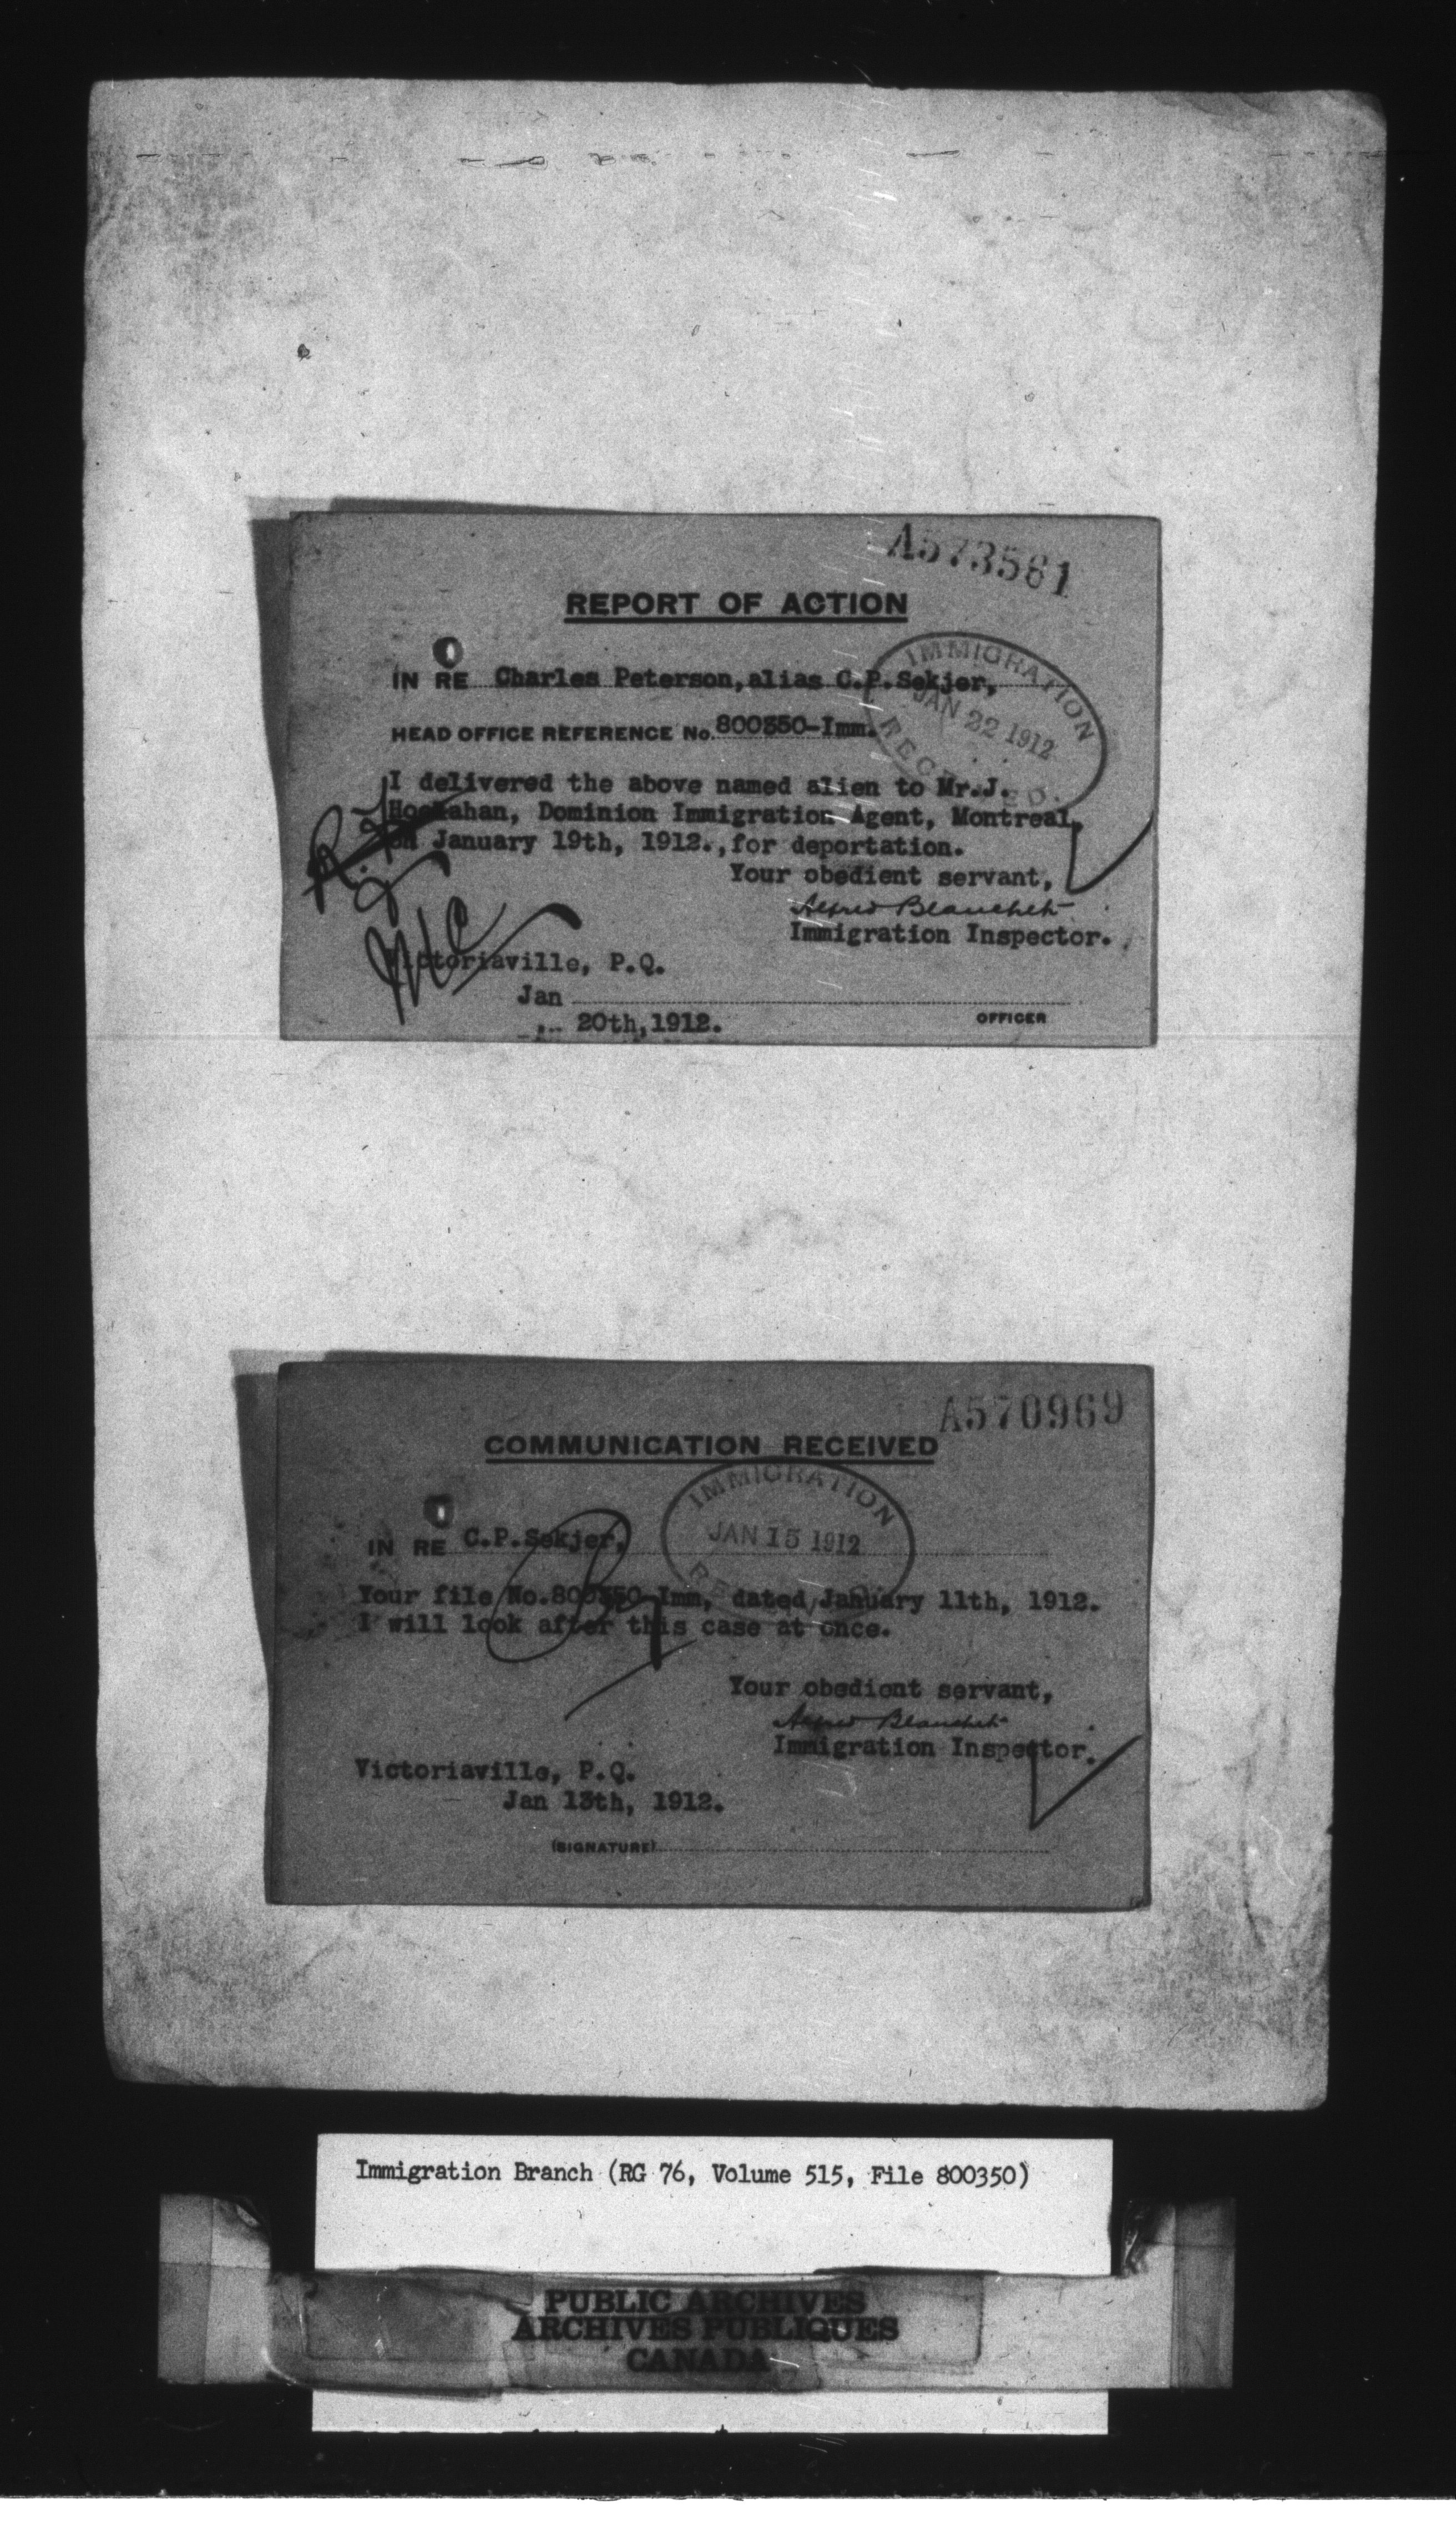 A573561
REPORT OF ACTION
IN RE Charles Peterson, alias C.P.Sekjer,
HEAD OFFICE REFERENCE No. 800350-Imm.
IMMIGRATION
JAN 22 1912
RECEIVED.
I delivered the above named alien to Mr.J.
Hoolahan, Dominion Immigration Agent, Montreal,
on January 19th, 1912.,for deportation.
Your obedient servant,
Alfred Blanchet
Immigration Inspector.
Victoriaville, P.Q.
Jan
20th,1912.
OFFICER
A570969
COMMUNICATION RECEIVED
IMMIGRATION
JAN 15 1912
IN RE C.P.Sekjer,
Your file No.800350-Imm, dated January 11th, 1912.
I will look after this case at once.
Your obedient servant,
Alfred Blanchet
Immigration Inspector.
Victoriaville, P.Q.
Jan 13th, 1912.
(SIGNATURE)
Immigration Branch (RG 76, Volume 515, File 800350)
PUBLIC ARCHIVES
ARCHIVES PUBLIQUES
CANADA